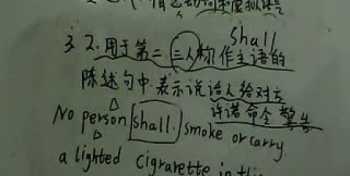 shall
3. 2. 用于第二三人称作主语的
陈述句中.表示说话人给对方
许诺命令警告
No person shall. smoke or carry
a lighted cigrarette in